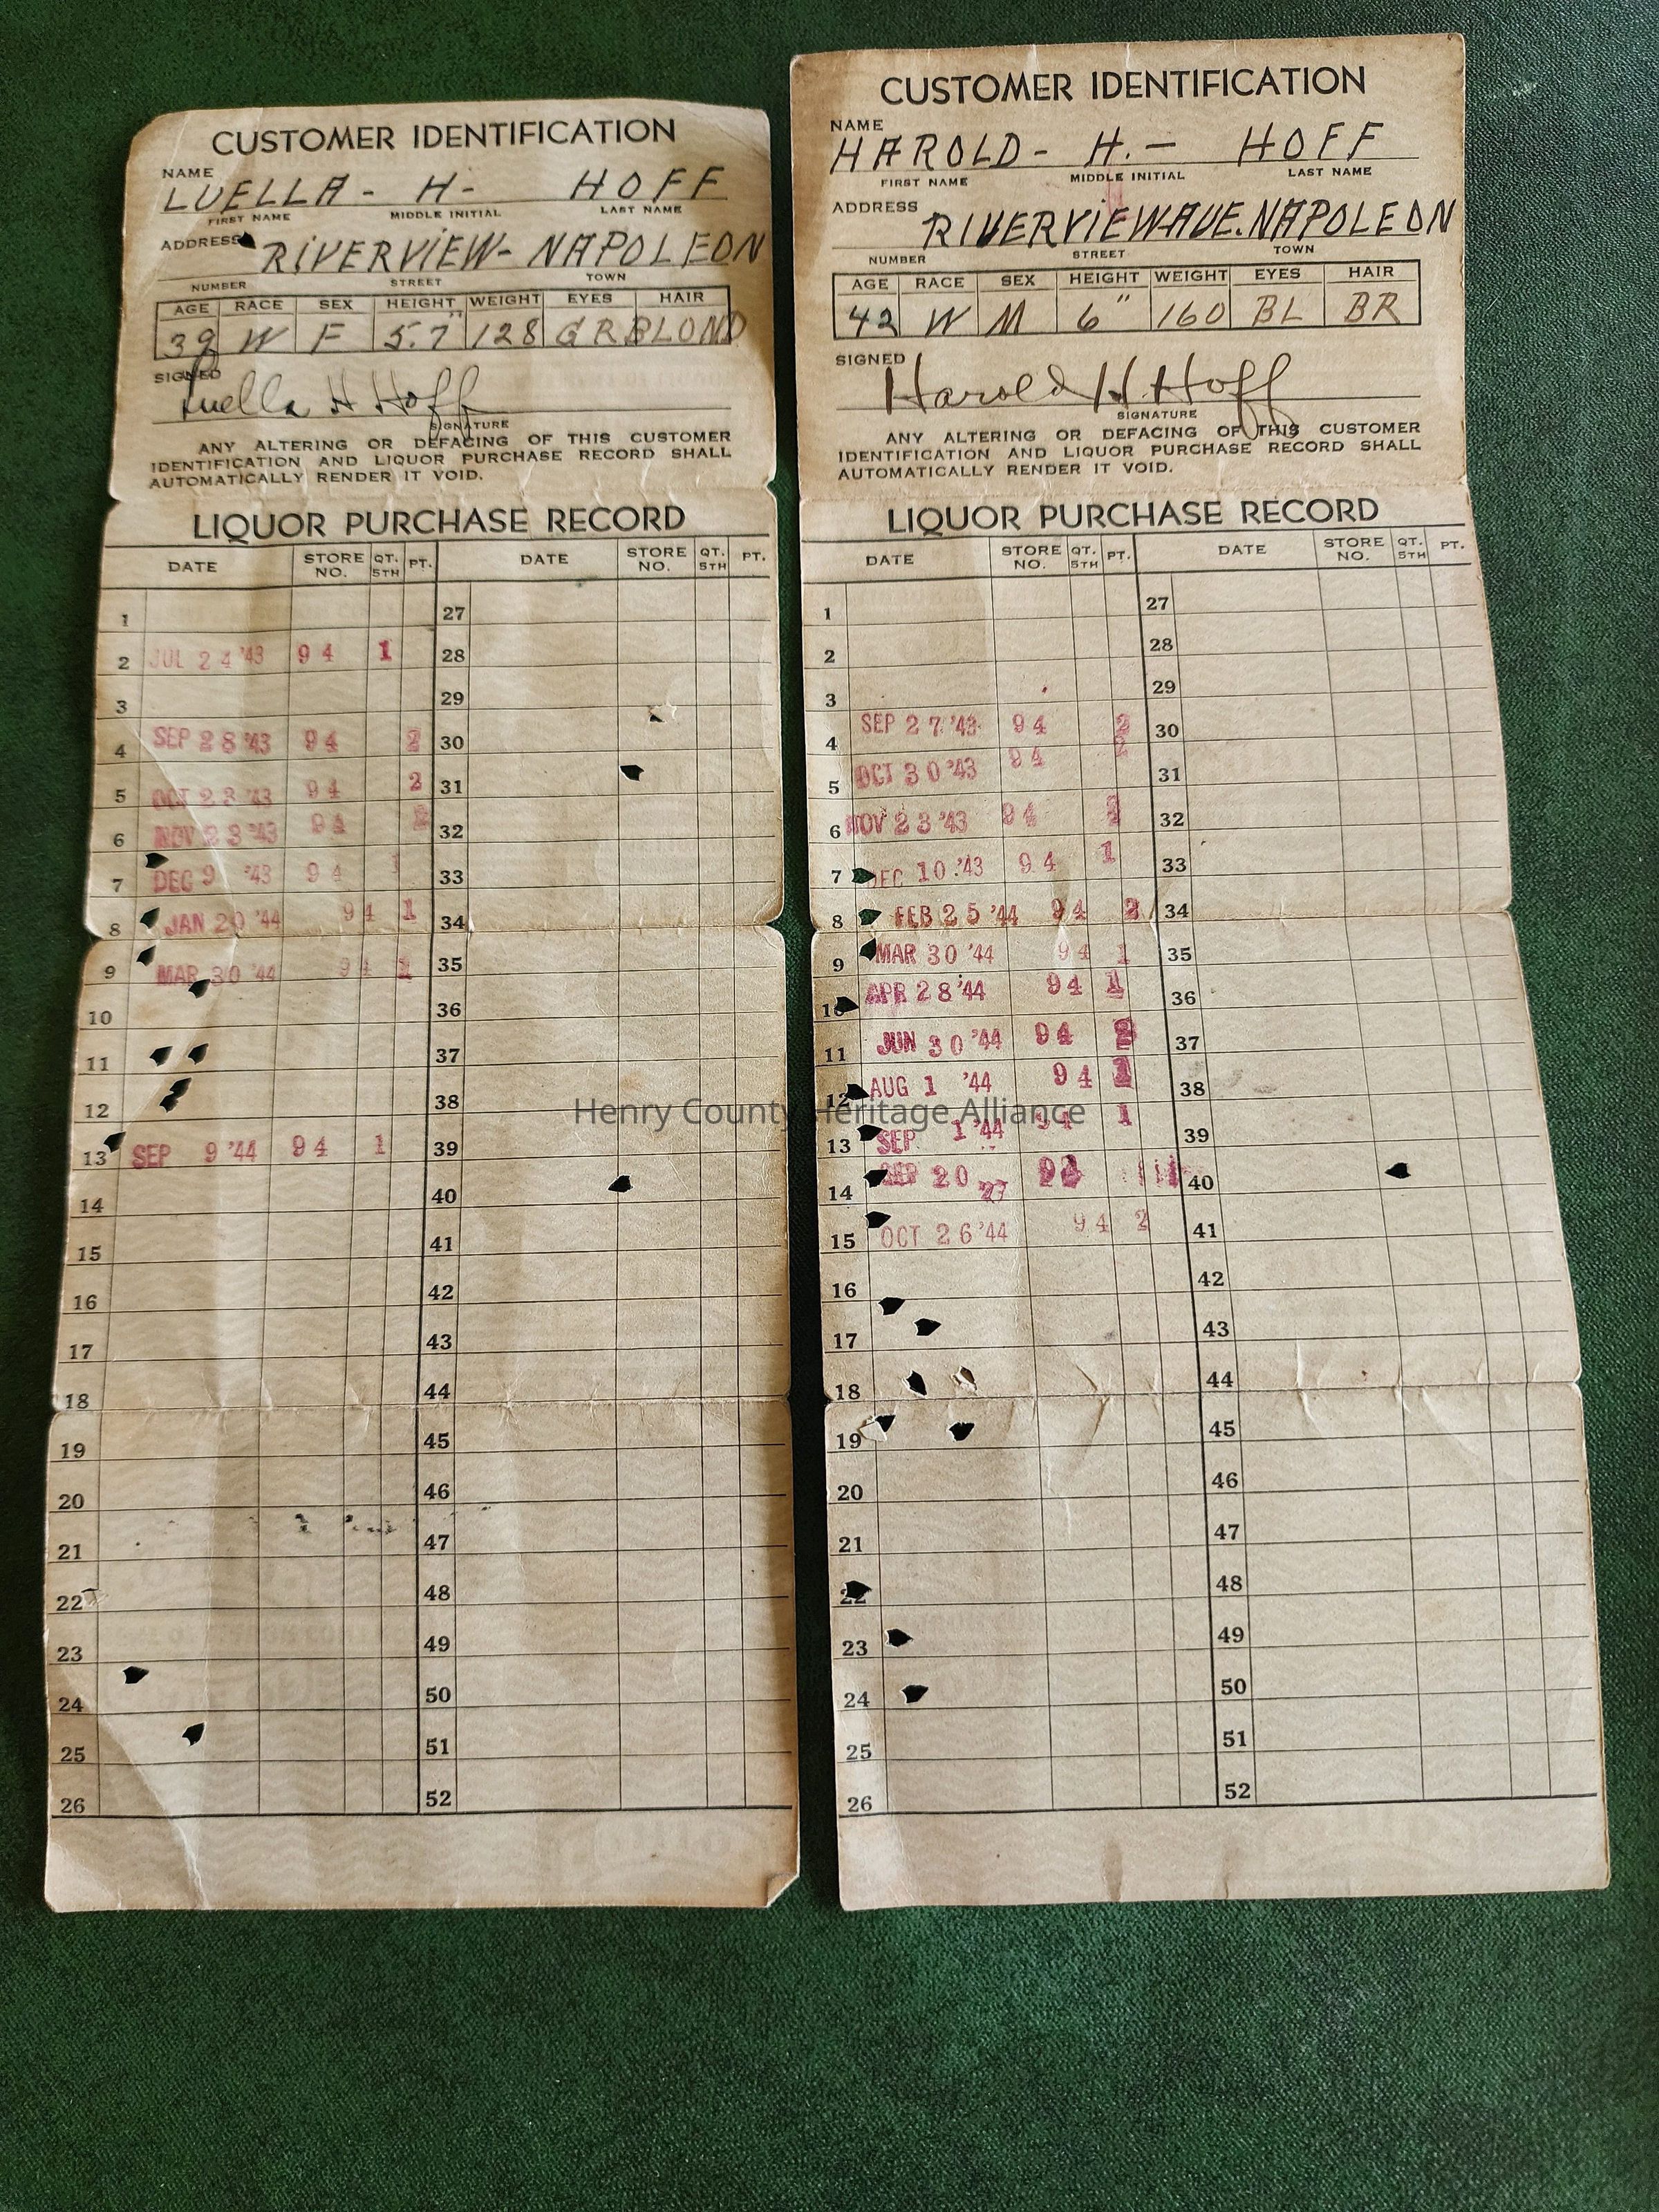 CUSTOMER IDENTIFICATION
NAME
LUELLA - H - HOFF
FIRST NAME MIDDLE INITIAL LAST NAME
ADDRESS
RIVERVIEW - NAPOLEON
NUMBER STREET TOWN
AGE RACE SEX HEIGHT WEIGHT EYES HAIR
39 W F 5.7" 128 GR BLOND
SIGNED
Luella H Hoff
SIGNATURE
ANY ALTERING OR DEFACING OF THIS CUSTOMER
IDENTIFICATION AND LIQUOR PURCHASE RECORD SHALL
AUTOMATICALLY RENDER IT VOID.
LIQUOR PURCHASE RECORD
DATE STORE NO. QT. 5TH PT. DATE STORE NO. QT. 5TH PT.
1 27
2 JUL 24 '43 94 1 28
3 29
4 SEP 28 '43 94 2 30
5 OCT 23 '43 94 2 31
6 NOV 23 '43 94 2 32
7 DEC 9 '43 94 1 33
8 JAN 20 '44 94 1 34
9 MAR 30 '44 94 35
10 36
11 37
12 38
13 SEP 9 '44 94 1 39
14 40
15 41
16 42
17 43
18 44
19 45
20 46
21 47
22 48
23 49
24 50
25 51
26 52
CUSTOMER IDENTIFICATION
NAME
HAROLD - H. - HOFF
FIRST NAME MIDDLE INITIAL LAST NAME
ADDRESS
RIVERVIEW AVE. NAPOLEON
NUMBER STREET TOWN
AGE RACE SEX HEIGHT WEIGHT EYES HAIR
42 W M 6" 160 BL BR
SIGNED
Harold H. Hoff
SIGNATURE
ANY ALTERING OR DEFACING OF THIS CUSTOMER
IDENTIFICATION AND LIQUOR PURCHASE RECORD SHALL
AUTOMATICALLY RENDER IT VOID.
LIQUOR PURCHASE RECORD
DATE STORE NO. QT. 5TH PT. DATE STORE NO. QT. 5TH PT.
1 27
2 28
3 29
4 SEP 27 '43 94 2 30
5 OCT 30 '43 94 2 31
6 NOV 23 '43 94 2 32
7 DEC 10 '43 94 1 33
8 FEB 25 '44 94 2 34
9 MAR 30 '44 94 1 35
10 APR 28 '44 94 1 36
11 JUN 30 '44 94 2 37
12 AUG 1 '44 94 1 38
13 SEP 1 '44 94 1 39
14 SEP 20 40
15 OCT 26 '44 94 2 41
16 42
17 43
18 44
19 45
20 46
21 47
22 48
23 49
24 50
25 51
26 52
Henry County Heritage Alliance